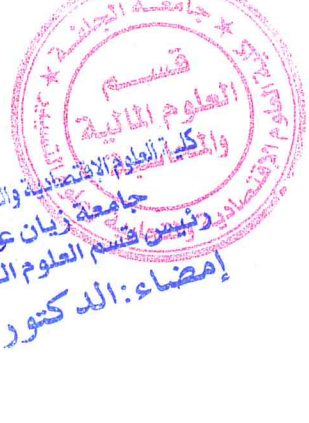 جامعة الجلفة
قسم
العلوم المالية
والمحاسبة
كلية العلوم الاقتصادية وال
جامعة زيان ع
رئيس قسم العلوم ال
إمضاء: الدكتور